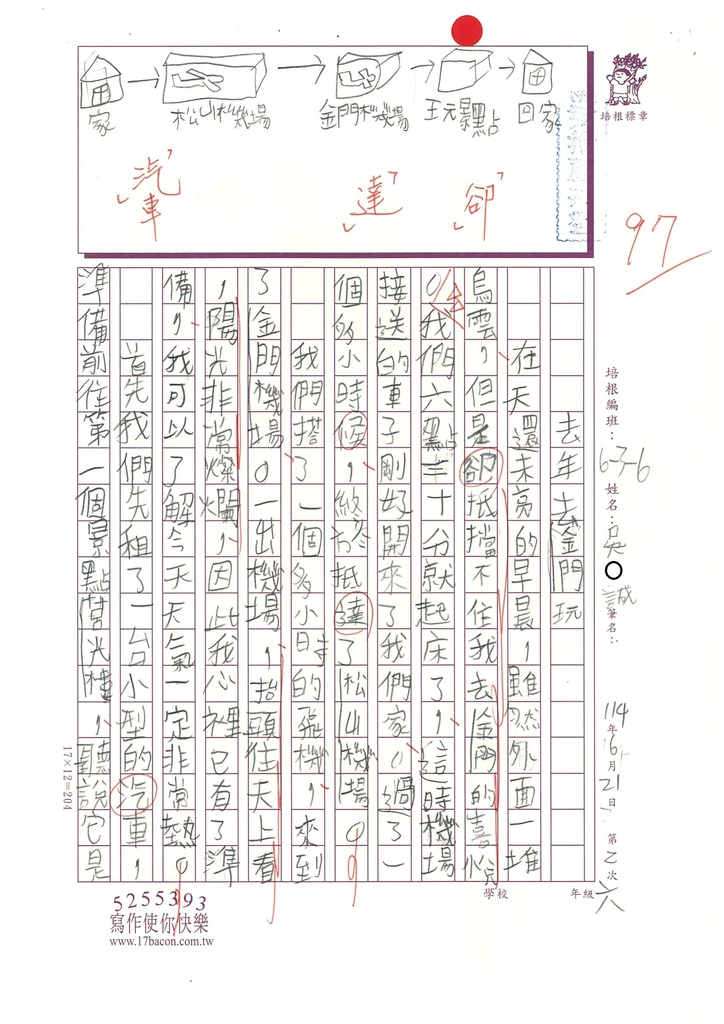 家
松山機場
金門機場
玩景點
回家
「汽車」
「達」
「卻」
培根標章
97
培根編班：6-7-6 姓名：吳 誠 筆名：
114年6月21日 第2次 六
學校 年級
去年去金門玩
在天還未亮的早晨，雖然外面一堆
烏雲，但是卻抵擋不住我去金門的喜悅
。我們六點三十分就起床了，這時機場
接送的車子剛好開來了我們家。過了一
個多小時候，終於抵達了松山機場。
我們搭了一個多小時的飛機，來到
了金門機場。一出機場，抬頭往天上看
，陽光非常燦爛，因此我心裡已有了準
備，我可以了解今天天氣一定非常熱。
首先我們先租了一台小型的汽車，
準備前往第一個景點莒光樓，聽說它是
17×12=204
5255393
寫作使你快樂
www.17bacon.com.tw